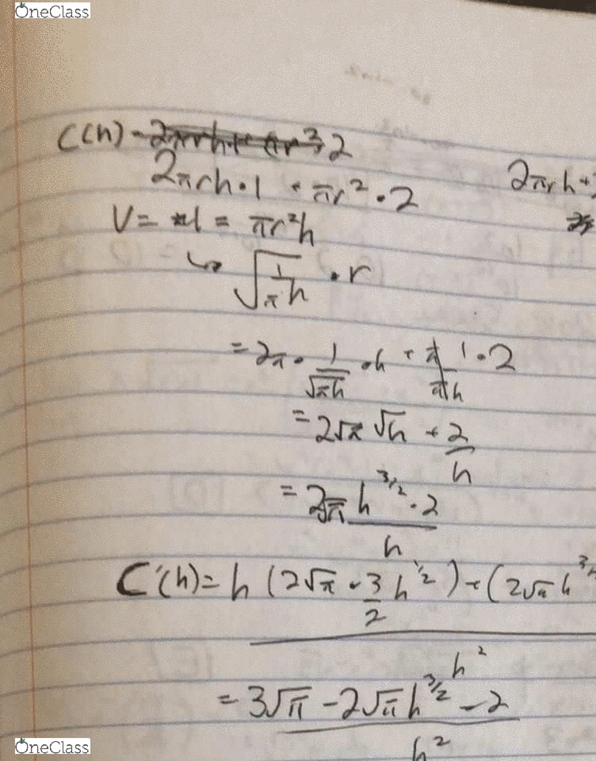 OneClass
C(h) = 2πrh + πr² · 2
2πrh · 1 + πr² · 2 2πrh +
V = 1 = πr²h
↳ √(1/(πh)) = r
= 2π · 1/√(πh) · h + π 1/(πh) · 2
= 2√π √h + 2/h
= (2√π h^(3/2) + 2)/h
C'(h) = (h (2√π · 3/2 h^(1/2)) - (2√π h^(3/
h²
= (3√π - 2√π h^(3/2) - 2)/h²
OneClass